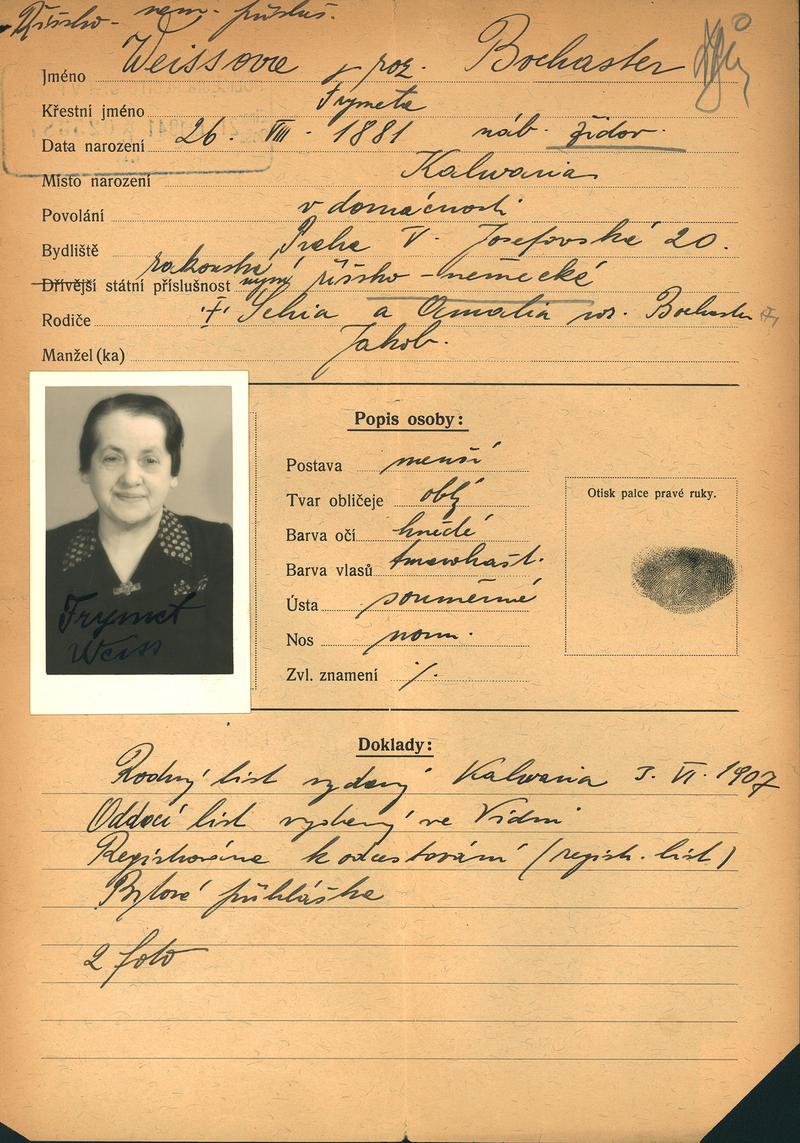 Říšsko - něm. - přísluš.
Jméno Weissová roz. Bochaster
Křestní jméno Frymeta
Data narození 26. VIII. 1881 náb. židov.
Místo narození Kalwaria
Povolání v domácnosti
Bydliště Praha V. Josefovská 20.
rakouská,
Dřívější státní příslušnost nyní říšsko - německé
Rodiče Schia a Amalia roz. Bochaster
Manžel (ka) Jakob.
Popis osoby:
Postava menší
Tvar obličeje oblý
Barva očí hnědé
Barva vlasů tmavokašt.
Ústa souměrné
Nos norm.
Zvl. znamení %
Otisk palce pravé ruky.
Frymet
Weiss
Doklady:
Rodný list vydaný Kalwaria 3. VI. 1907
Oddací list vydaný ve Vídni
Registrována k odcestování (regist. list)
Bytová přihláška
2 foto